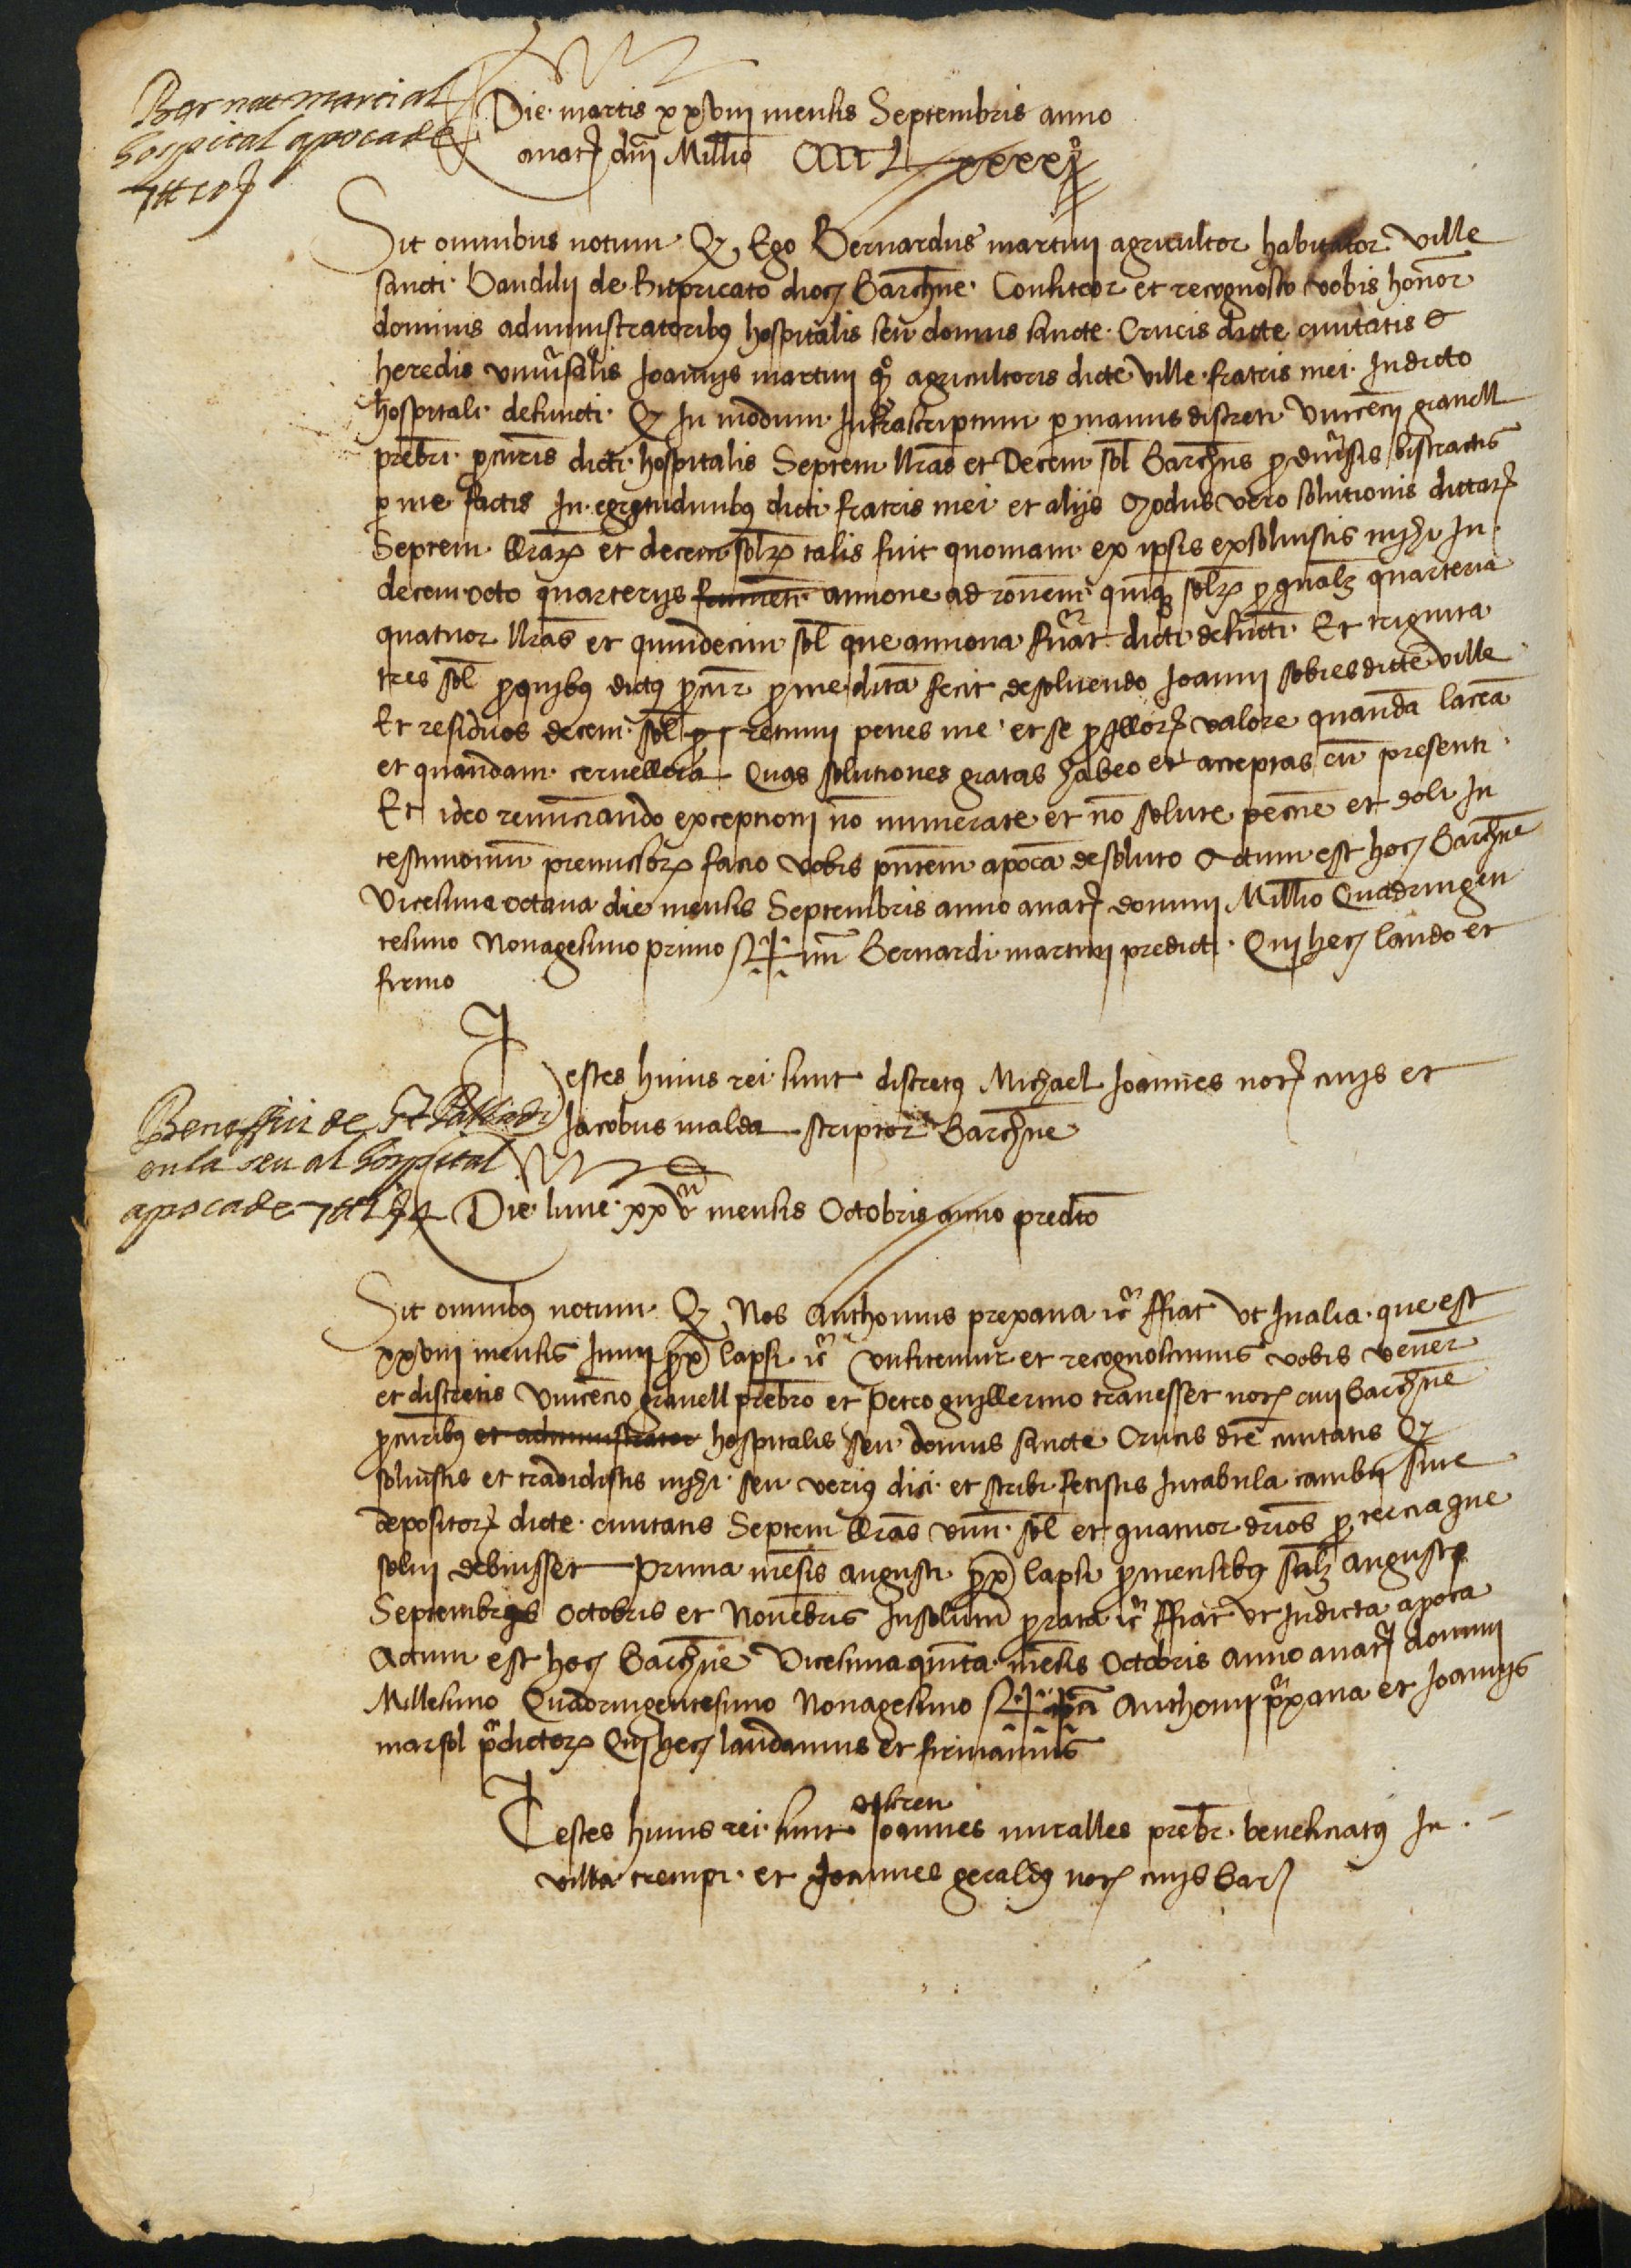 Bernat marti al
hospital apoca de
7 ll 10 s
Die martis xxviii mensis Septembris anno
anatꝭ dnī Millīo CCCC Lxxxxiº
Sit omnibus notum Qꝫ Ego Bernardus martini agricultor habitator ville
sancti Baudilii de lupricato diocꝭ Barchne Confiteor et recognosco vobis honor
dominis administratoribꝰ hospitalis seu domus sancte Crucis dicte civitatis &
heredis univsalis Ioannis martini qº agricultoris dicte ville fratris mei In dicto
hospitali defuncti Qꝫ In modum Infrascriptum p manus discreti Vincencii gravell
prebri pcuris dicti hospitalis Septem llras et Decem sol Barchns p diversis bistractis
p me factis In egritudinibꝰ dicti fratris mei et aliis Modus vero solutionis dictarꝭ
Septem llraꝝ et decem soloꝝ talis fuit quoniam ex ipsis exsolvistis michi In
decem octo quarteriis frumenti annone ad ronem quinqꝫ soloꝝ p qualꝫ quarteria
quatuor llras et quindecim sol que annona fuerat dicti defuncti Et triginta
tres sol p quibꝰ dictꝰ pcur p me dita fecit de solvendo Ioanni sobres dicte ville
Et residuos decem sol p retinui penes me et se p illorꝭ valore quanda lacea
et quandam cervellera Quas solutiones gratas habeo et acceptas cu presenti
Et ideo renunciando exceptioni no numerate et no solute pecune et doli In
testimoniu premissoꝝ facio vobis pntem apoca de soluto Actum est hocꝭ Barchne
Vicesima octava die mensis Septembris anno anatꝭ domini Millio Quadringen
tesimo Nonagesimo primo S+num Bernardi martini predicti Qui hecꝭ laudo et
firmo
Testes huius rei sunt discretꝰ Michael Ioannes notꝭ civis et
Iacobus malda scriptor Barchne
Beneffici de St
en la seu al hospital
apoca de 7 ll
Die lune xxv mensis Octobris anno predcto
Sit omnibꝰ notum Qꝫ Nos Anthonius prexana ic ffiat ut In alia que est
xxviii mensis Iunii px lapsi ic Confitemur et recognoscimus vobis vener
et discretis Vincencio gravell prebro et Petro guillermo travesset notꝭ civi Barchne
pcuribꝰ et administrator hospitalis seu domus sancte Crucis dte civitatis Qꝫ
solvistis et tradidistis michi seu veriꝰ dici et scribi fecistis In tabula cambii sive
depositorꝭ dicte civitatis Septem llras sol et quatuor drios p tercia que
solvi debuisset Prima mesis augusti px lapsi p mensibꝰ salꝫ augusto
Septembris Octobris et Novembris In solutu prata ic ffiat ut In dicta apoca
Actum est hocꝭ Barchne Vicesima quinta mesis Octobris Anno anatꝭ domini
Millesimo Quadringentesimo Nonagesimo S+na Anthonii prexana et Ioannis
marsol pdictoꝝ Qui hecꝭ laudamus et firmamus
Testes huius rei sunt Ioannes miralles prebr beneficiatꝰ In
villa trempi et Ioannes geraldꝰ notꝭ civis Barꝭ